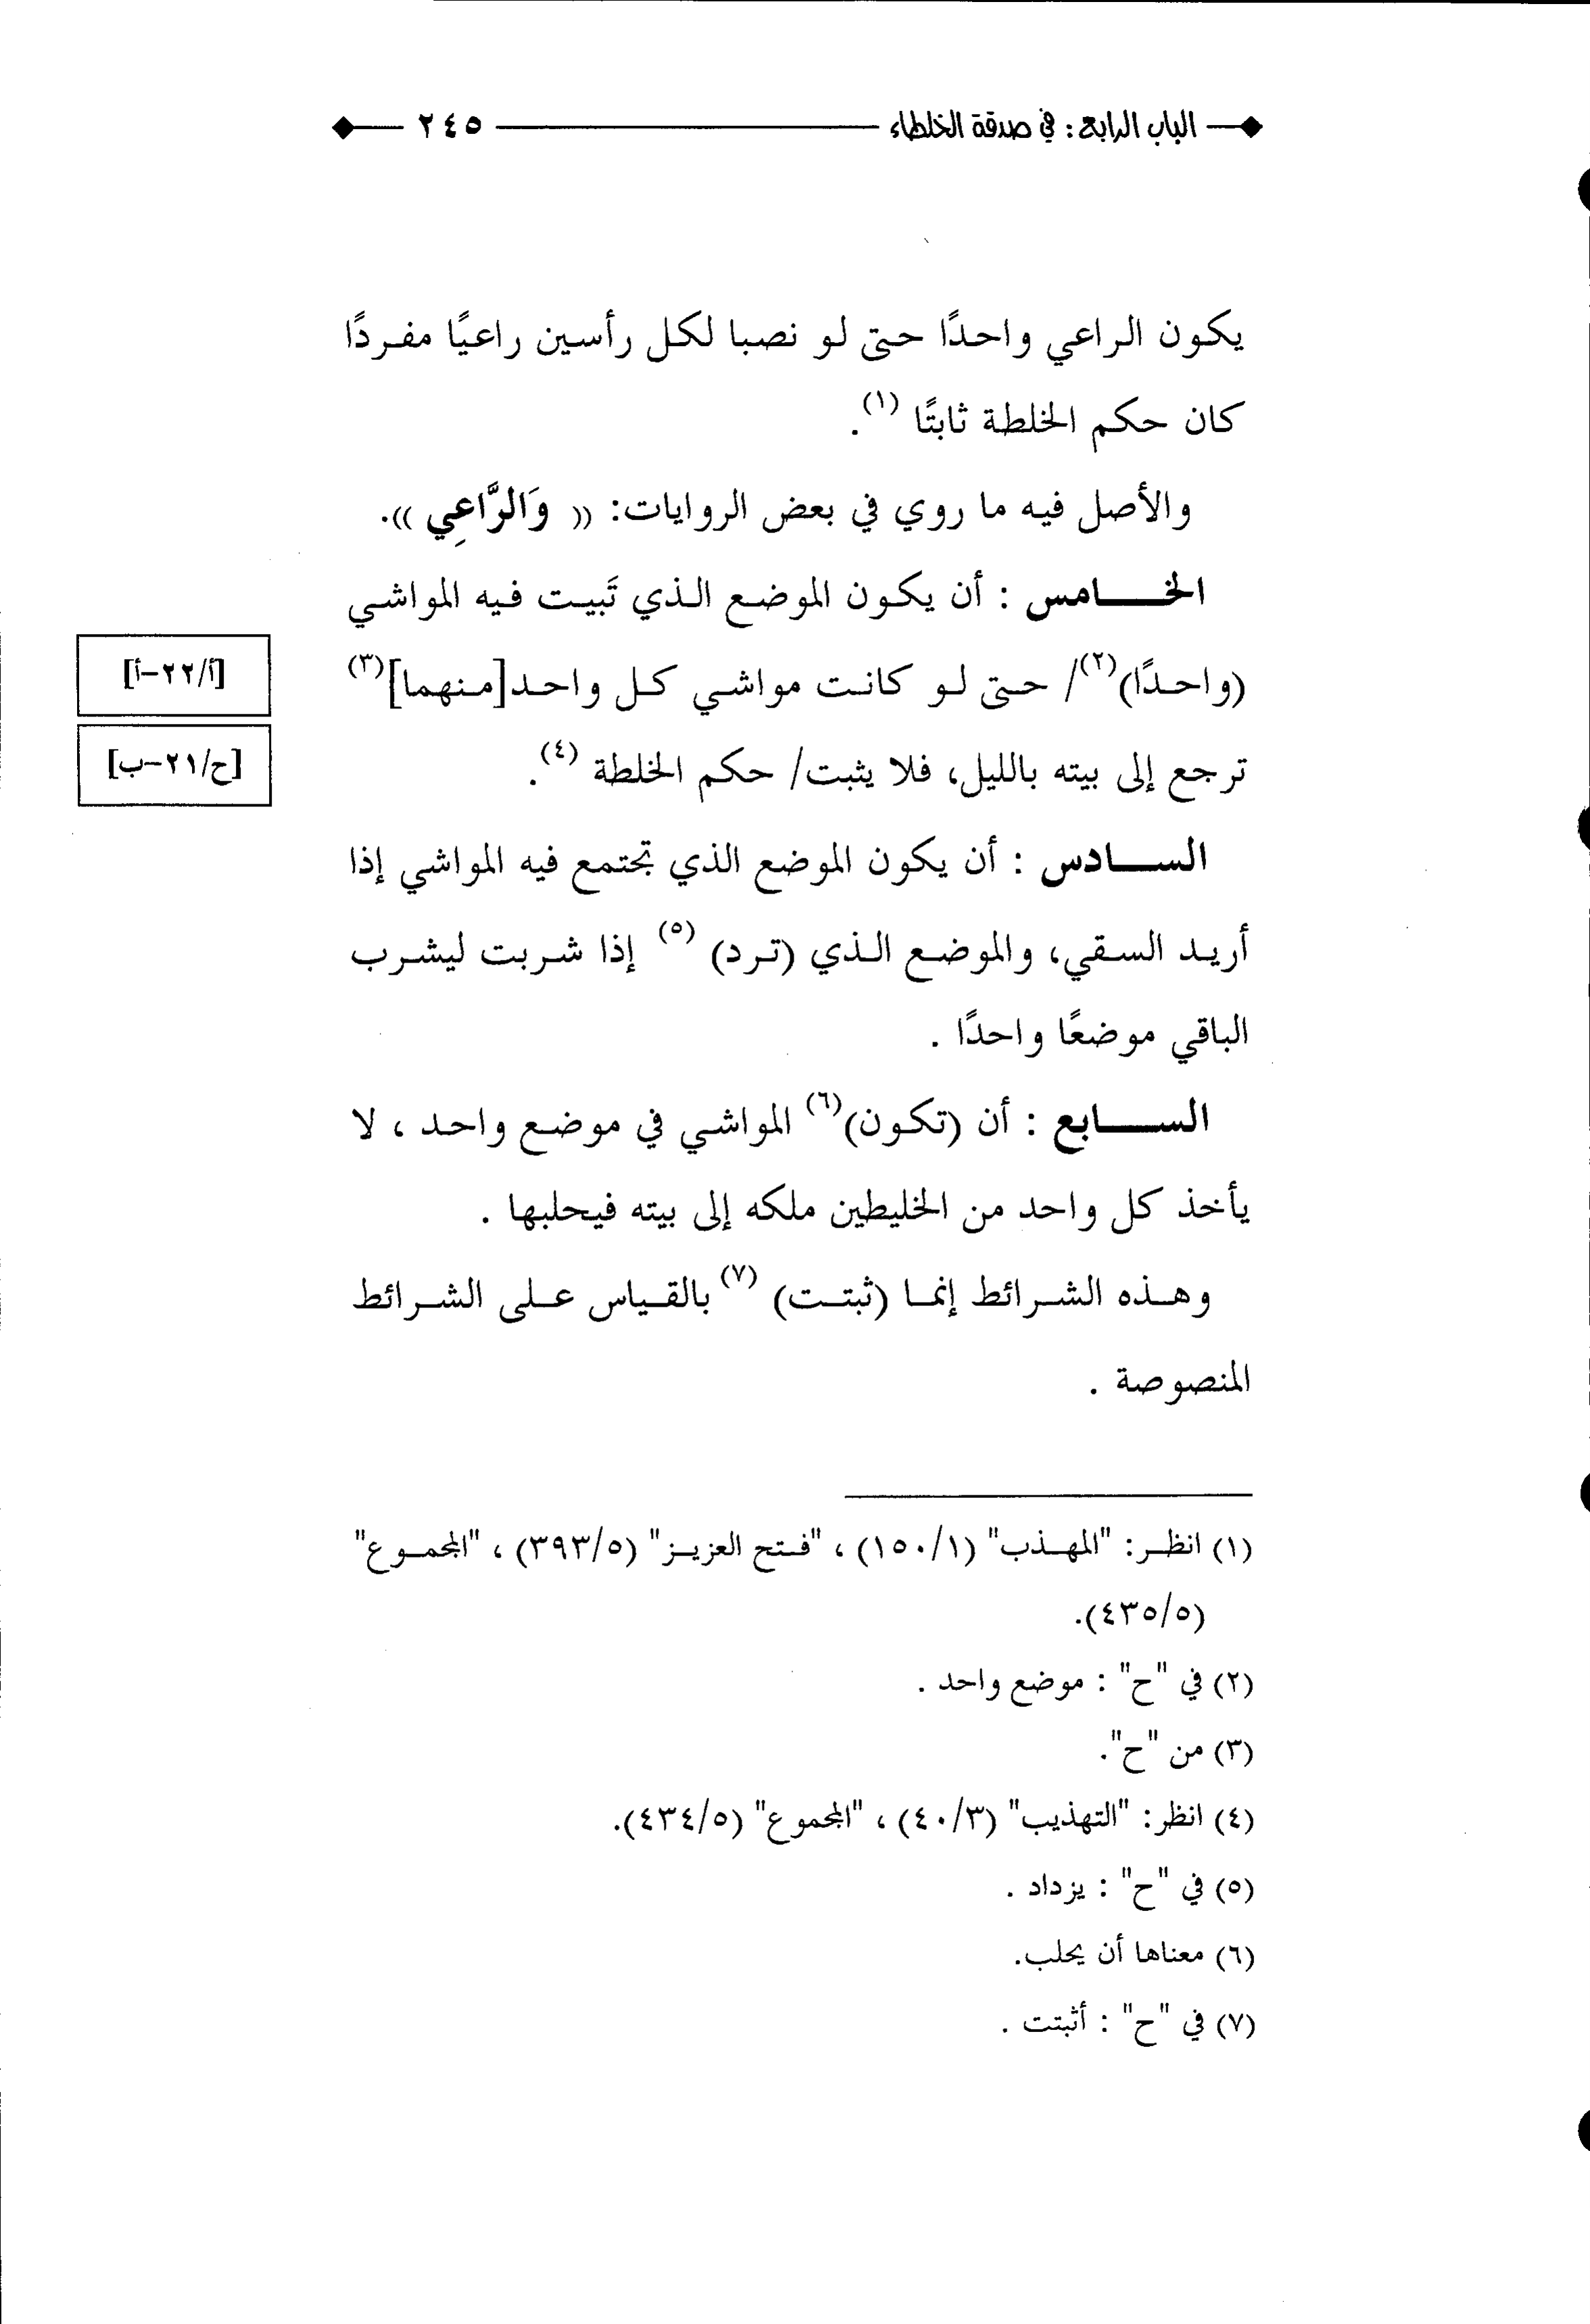 الباب الرابع: في صدقة الخلطاء ٢٤٥
يكون الراعي واحدًا حتى لو نصبا لكل رأسين راعيًا مفردًا
كان حكم الخلطة ثابتًا (١).
والأصل فيه ما روي في بعض الروايات: (( وَالرَّاعِي )).
الخامس : أن يكون الموضع الذي تَبيت فيه المواشي
(واحدًا)(٢)/ حتى لو كانت مواشي كل واحد[منهما](٣)
[أ/٢٢-أ]
ترجع إلى بيته بالليل، فلا يثبت/ حكم الخلطة (٤).
[ح/٢١-ب]
السادس : أن يكون الموضع الذي تجتمع فيه المواشي إذا
أريد السقي، والموضع الذي (ترد) (٥) إذا شربت ليشرب
الباقي موضعًا واحدًا .
السابع : أن (تكون)(٦) المواشي في موضع واحد ، لا
يأخذ كل واحد من الخليطين ملكه إلى بيته فيحلبها .
وهذه الشرائط إنما (ثبتت) (٧) بالقياس على الشرائط
المنصوصة .
(١) انظر: "المهذب" (١٥٠/١) ، "فتح العزيز" (٣٩٣/٥) ، "المجموع"
(٤٣٥/٥).
(٢) في "ح" : موضع واحد .
(٣) من "ح".
(٤) انظر: "التهذيب" (٤٠/٣) ، "المجموع" (٤٣٤/٥).
(٥) في "ح" : يزداد .
(٦) معناها أن يحلب.
(٧) في "ح" : أثبتت .